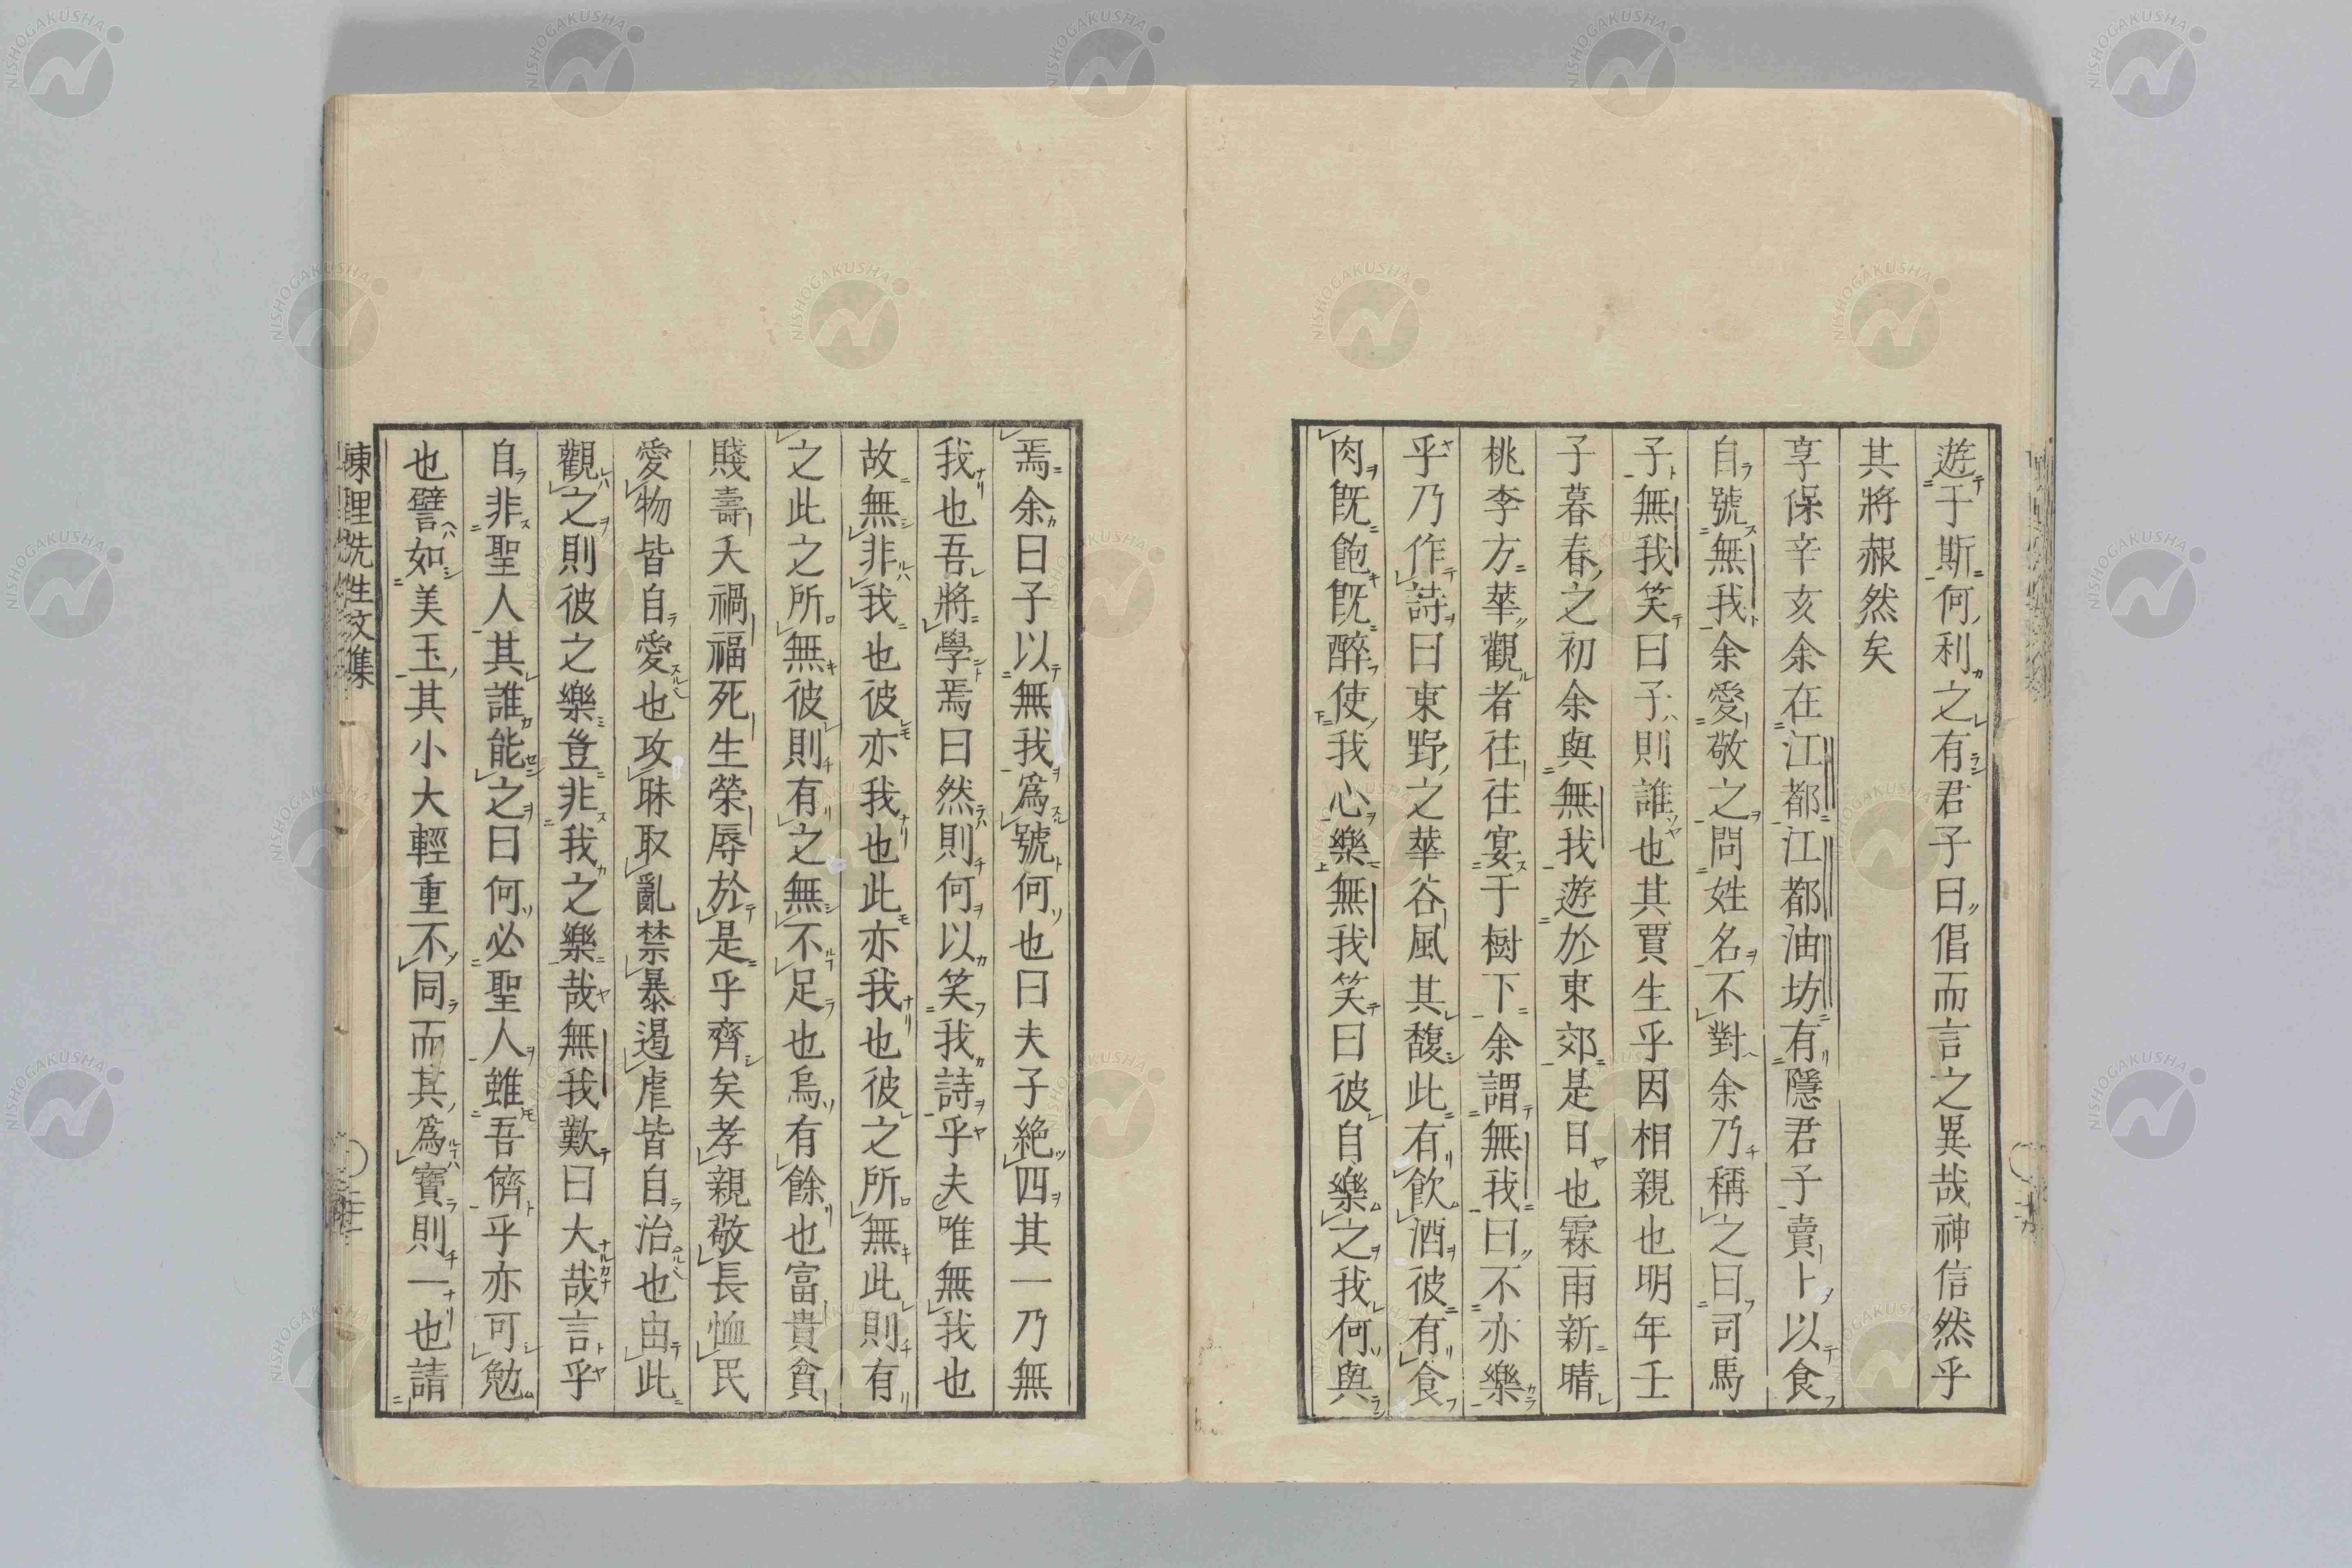 遊于斯何利之有君子曰倡而言之異哉神信然乎
其將赧然矣
享保辛亥余在江都江都油坊有隱君子賣卜以食
自號無我余愛敬之問姓名不對余乃稱之曰司馬
子無我笑曰子則誰也其賈生乎因相親也明年壬
子暮春之初余與無我遊於東郊是日也霖雨新晴
桃李方華觀者往往宴于樹下余謂無我曰不亦樂
乎乃作詩曰東野之華谷風其馥此有飲酒彼有食
肉既飽既醉使我心樂無我笑曰彼自樂之我何與
焉余曰子以無我爲號何也曰夫子絶四其一乃無
我也吾將學焉曰然則何以笑我詩乎夫唯無我也
故無非我也彼亦我也此亦我也彼之所無此則有
之此之所無彼則有之無不足也烏有餘也富貴貧
賤壽夭禍福死生榮辱於是乎齊矣孝親敬長恤民
愛物皆自愛也攻昧取亂禁暴遏虐皆自治也由此
觀之則彼之樂豈非我之樂哉無我歎曰大哉言乎
自非聖人其誰能之曰何必聖人雖吾儕乎亦可勉
也譬如美玉其小大輕重不同而其爲寶則一也請
NISHOGAKUSHA